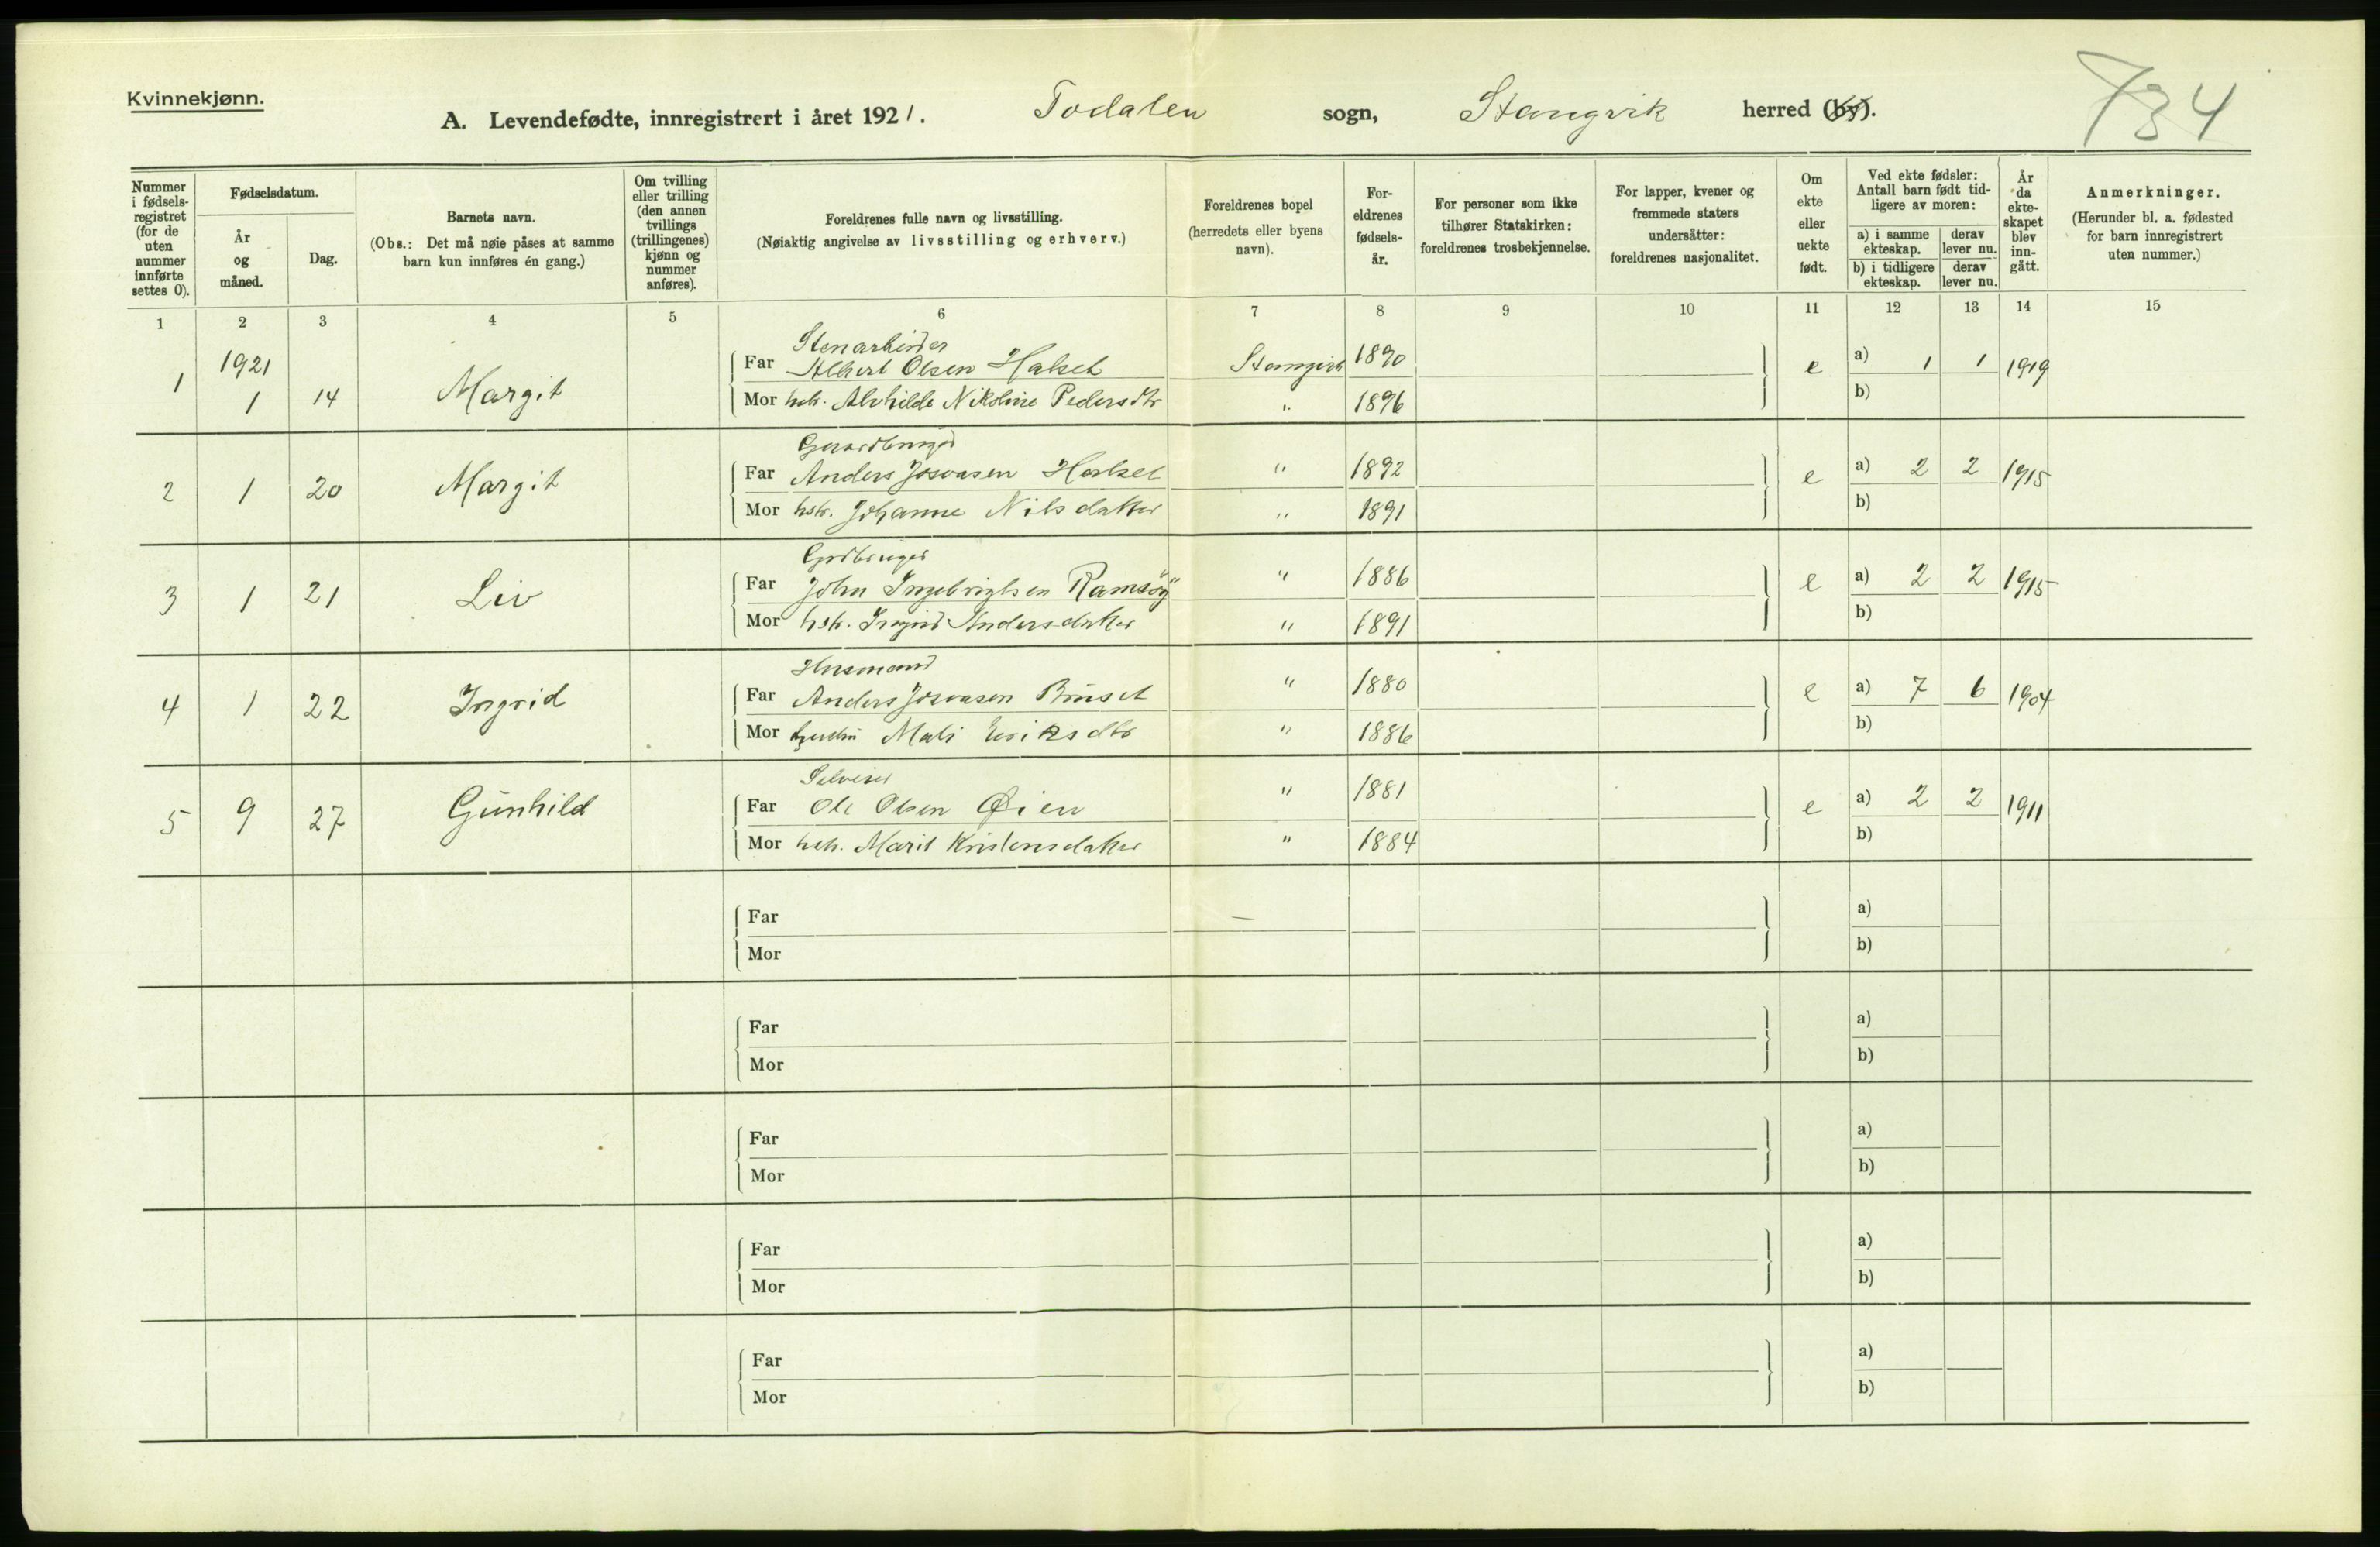 Kvinnekjønn.
A. Levendefødte, innregistrert i året 1921. Todalen sogn, Stangvik herred (by).
734
Nummer i fødsels-registret (for de uten nummer innførte settes 0).
Fødselsdatum.
År og måned.
Dag.
Barnets navn.
(Obs.: Det må nøie påses at samme barn kun innføres én gang.)
Om tvilling eller trilling (den annen tvillings (trillingenes) kjønn og nummer anføres).
Foreldrenes fulle navn og livsstilling.
(Nøiaktig angivelse av livsstilling og erhverv.)
Foreldrenes bopel (herredets eller byens navn).
For-eldrenes fødsels-år.
For personer som ikke tilhører Statskirken: foreldrenes trosbekjennelse.
For lapper, kvener og fremmede staters undersåtter: foreldrenes nasjonalitet.
Om ekte eller uekte født.
Ved ekte fødsler: Antall barn født tid-ligere av moren:
a) i samme ekteskap.
derav lever nu.
b) i tidligere ekteskap.
derav lever nu.
År da ekte-skapet blev inn-gått.
Anmerkninger.
(Herunder bl. a. fødested for barn innregistrert uten nummer.)
1 2 3 4 5 6 7 8 9 10 11 12 13 14 15
Stenarbeider
1921
1 1 14 Margit Far Albert Olsen Halset Stangvik 1890 e a) 1 1 1919
Mor hstr. Alvhilde Nikoline Pedersdtr " 1896 b)
Gaardbruger
2 1 20 Margit Far Anders Josvasen Halset " 1892 e a) 2 2 1915
Mor hstr. Johanne Nilsdatter " 1891 b)
Grdbruger
3 1 21 Liv Far John Ingebrigtsen Ramsöy " 1886 e a) 2 2 1915
Mor hstr. Ingrid Andersdatter " 1891 b)
Husmand
4 1 22 Ingrid Far Anders Josvasen Bruset " 1880 e a) 7 6 1904
Mor Hustru Mali Eriksdtr " 1886 b)
Selveier
5 9 27 Gunhild Far Ole Olsen Øien " 1881 e a) 2 2 1911
Mor hstr. Marit Kristensdatter " 1884 b)
Far a)
Mor b)
Far a)
Mor b)
Far a)
Mor b)
Far a)
Mor b)
Far a)
Mor b)